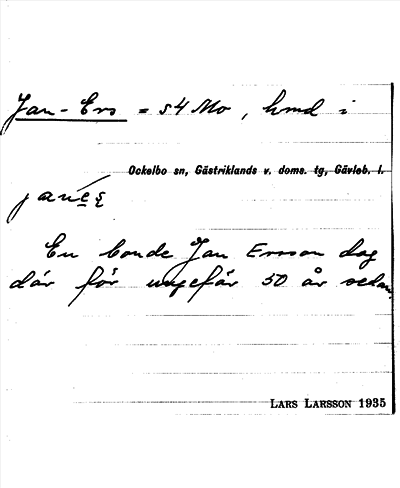 Jan-Ers = 54 Mo, hmd i
Ockelbo sn, Gästriklands v. doms. tg, Gävleb. l.
En bonde Jan Ersson dog
där för ungefär 50 år sedan.
LARS LARSSON 1935